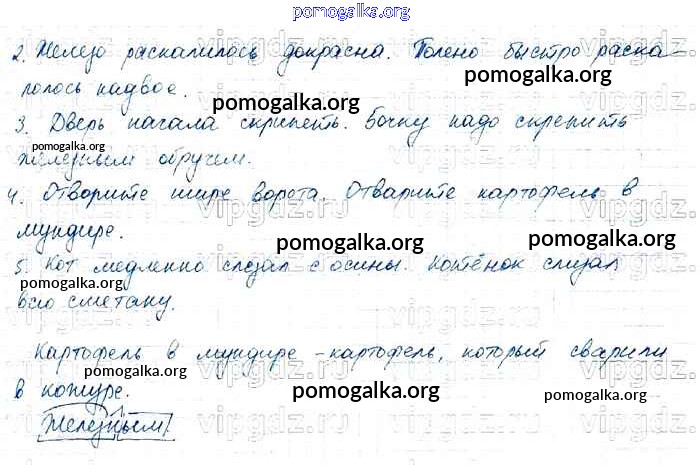 pomogalka.org
2. Железо раскалилось докрасна. Полено быстро раска-
pomogalka.org
лолось надвое.
pomogalka.org
vipgdz.ru
3. Дверь начала скрипеть. Бочку надо скрепить
pomogalka.org
железным обручем.
4. Отворите шире ворота. Отварите картофель в
vipgdz.ru
мундире.
pomogalka.org
pomogalka.org
5. Кот медленно слезал с осины. Котёнок слизал
pomogalka.org
всю сметану.
vipgdz.ru
Картофель в мундире - картофель, который сварили
pomogalka.org
в кожуре.
pomogalka.org
pomogalka.org
Железным
vipgdz.ru